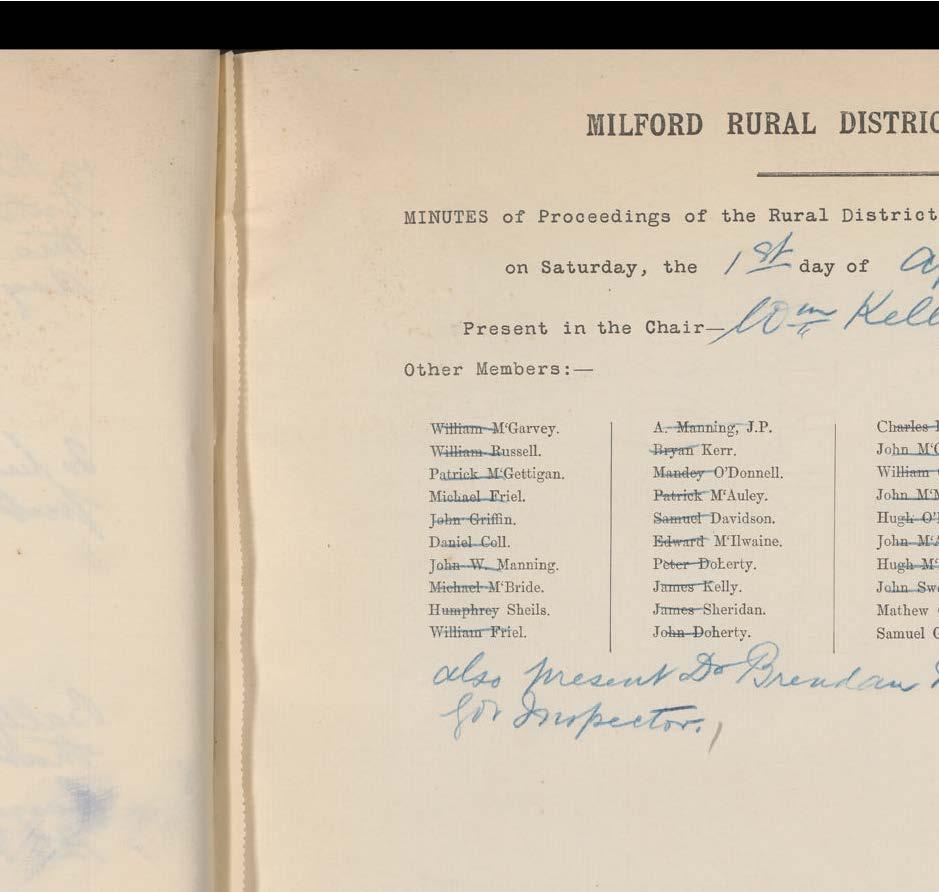 MILFORD RURAL DISTRIC
MINUTES of Proceedings of the Rural District
on Saturday, the 1st day of Ap
Present in the Chair— Wm Kell
Other Members:—
William M'Garvey.
William Russell.
Patrick M'Gettigan.
Michael Friel.
John Griffin.
Daniel Coll.
John W. Manning.
Michael M'Bride.
Humphrey Sheils.
William Friel.
A. Manning, J.P.
Bryan Kerr.
Mandey O'Donnell.
Patrick M'Auley.
Samuel Davidson.
Edward M'Ilwaine.
Peter Doherty.
James Kelly.
James Sheridan.
John Doherty.
Charles
John M'
William
John M'
Hugh O'
John M'A
Hugh M'
John Swe
Mathew
Samuel
also present Dr Brendan
Gov Inspector.